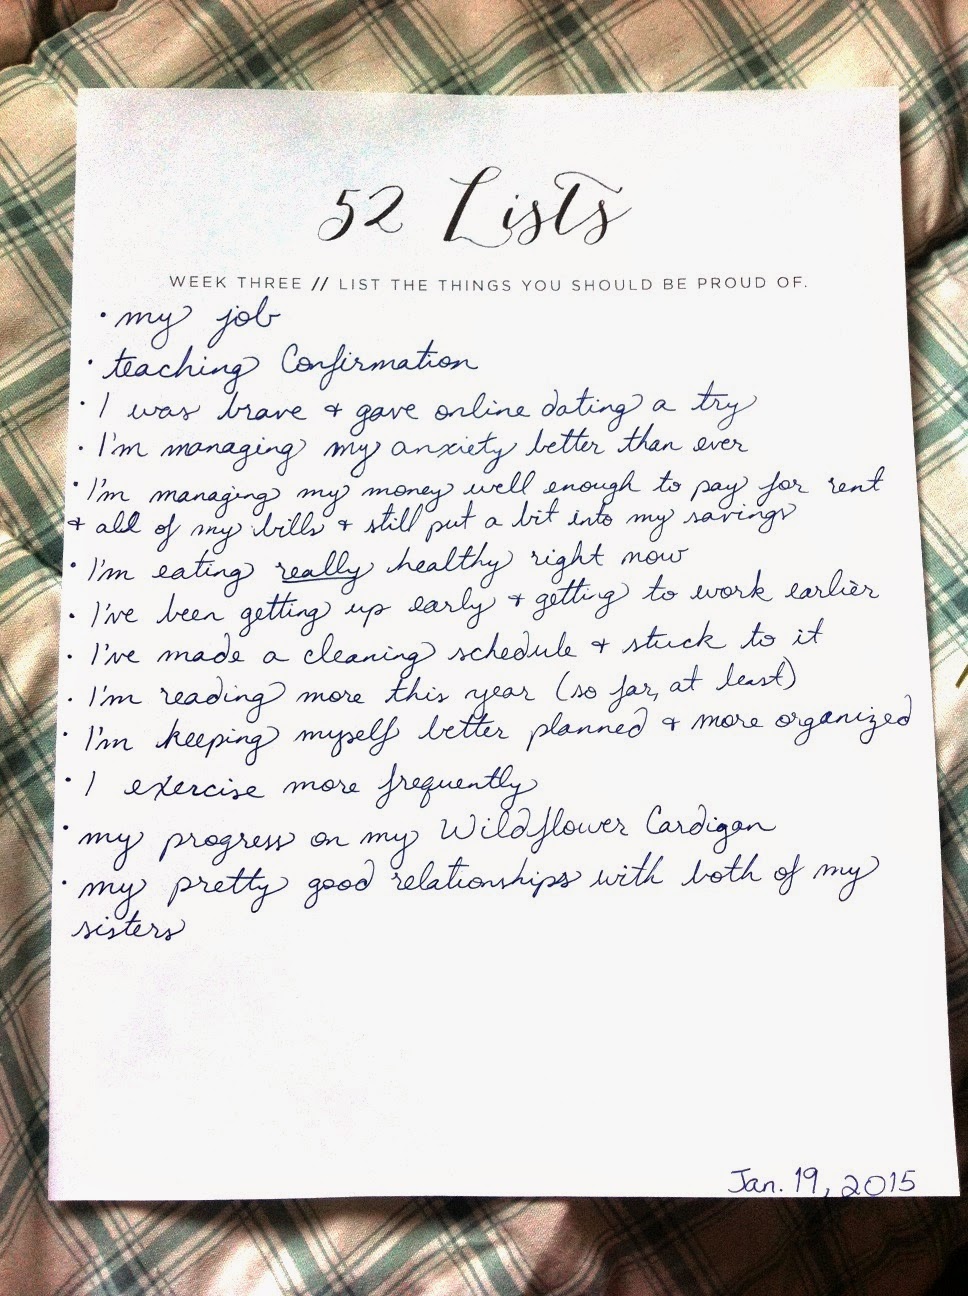 52 Lists
WEEK THREE // LIST THE THINGS YOU SHOULD BE PROUD OF.
• my job
• teaching Confirmation
• I was brave & gave online dating a try
• I'm managing my anxiety better than ever
• I'm managing my money well enough to pay for rent
& all of my bills & still put a bit into my savings
• I'm eating really healthy right now
• I've been getting up early & getting to work earlier
• I've made a cleaning schedule & stuck to it
• I'm reading more this year (so far, at least)
• I'm keeping myself better planned & more organized
• I exercise more frequently
• my progress on my Wildflower Cardigan
• my pretty good relationships with both of my
sisters
Jan. 19, 2015